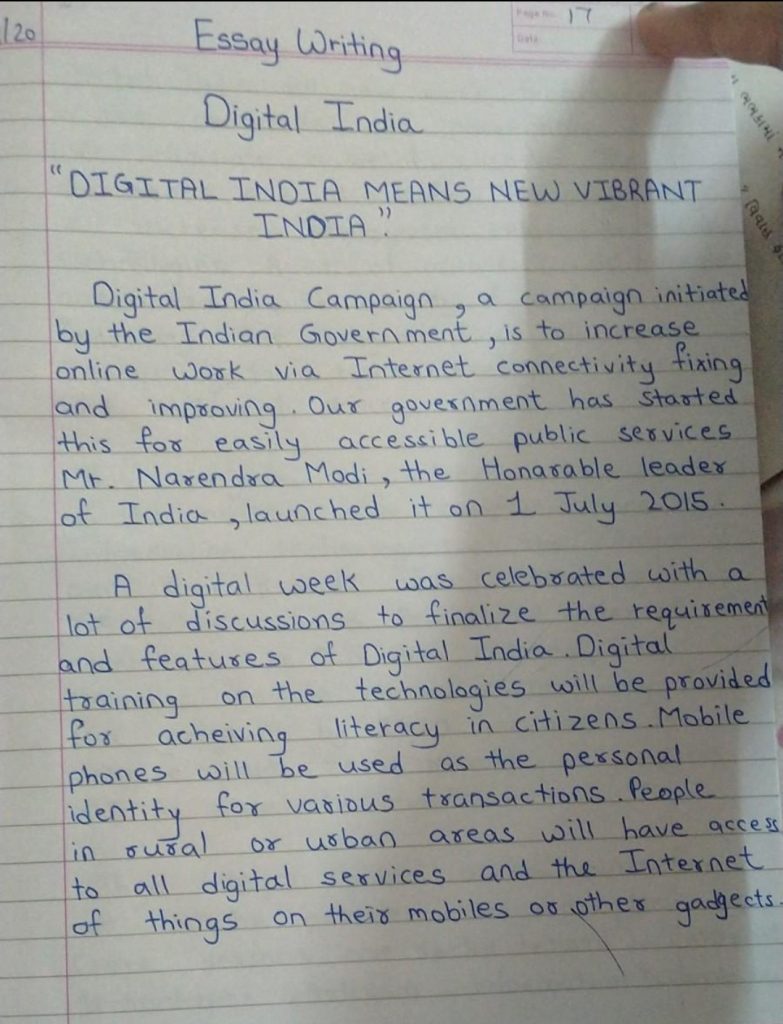 1/20
Page No. 17
Date
Essay Writing
Digital India
"DIGITAL INDIA MEANS NEW VIBRANT
INDIA".
Digital India Campaign, a campaign initiated
by the Indian Government, is to increase
online work via Internet connectivity fixing
and improving. Our government has started
this for easily accessible public services
Mr. Narendra Modi, the Honarable leader
of India, launched it on 1 July 2015.
A digital week was celebrated with a
lot of discussions to finalize the requirement
and features of Digital India. Digital
training on the technologies will be provided
for acheiving literacy in citizens. Mobile
phones will be used as the personal
identity for various transactions. People
in rural or urban areas will have access
to all digital services and the Internet
of things on their mobiles or other gadgects.